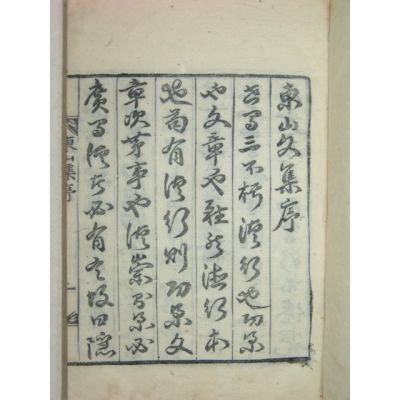 東山文集序
世有三不朽德行也功業
也文章也雖然德行本
也苟有德行則功業文
章次第事也德崇則業必
廣有德者必有言故曰隱
東山集序
一